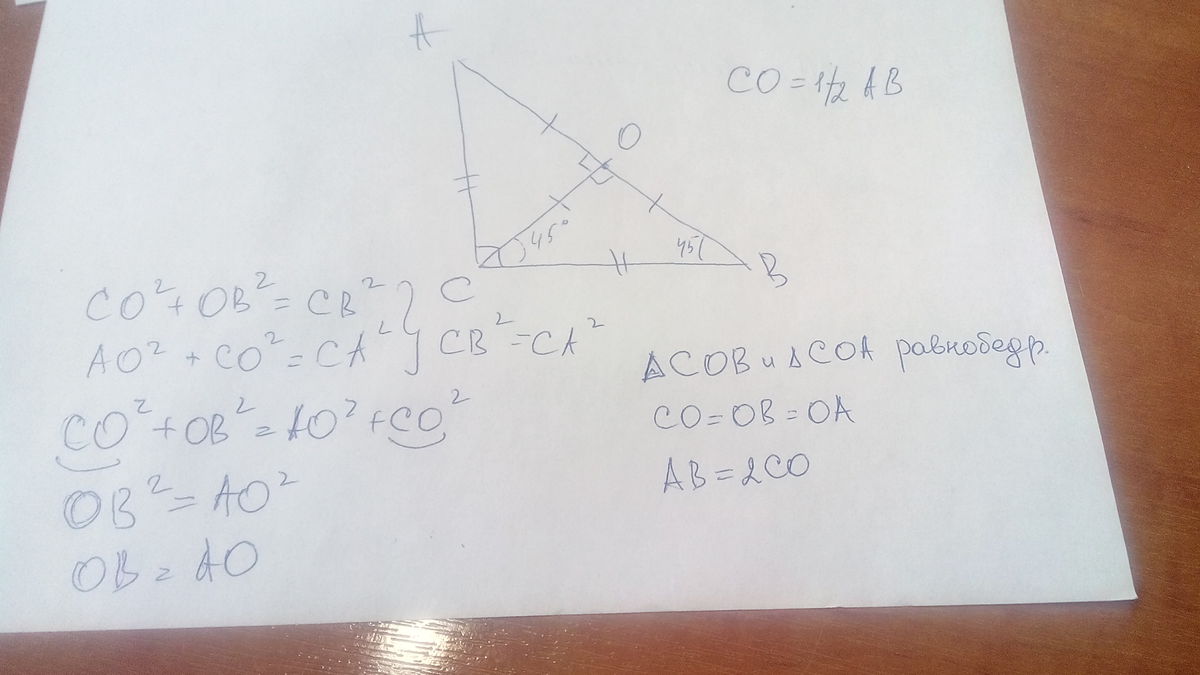 A
CO = 1/2 AB
O
45°
45
B
C
CO² + OB² = CB²
AO² + CO² = CA²
CB² = CA²
CO² + OB² = AO² + CO²
OB² = AO²
OB = AO
ΔCOB и ΔCOA равнобедр.
CO = OB = OA
AB = 2CO